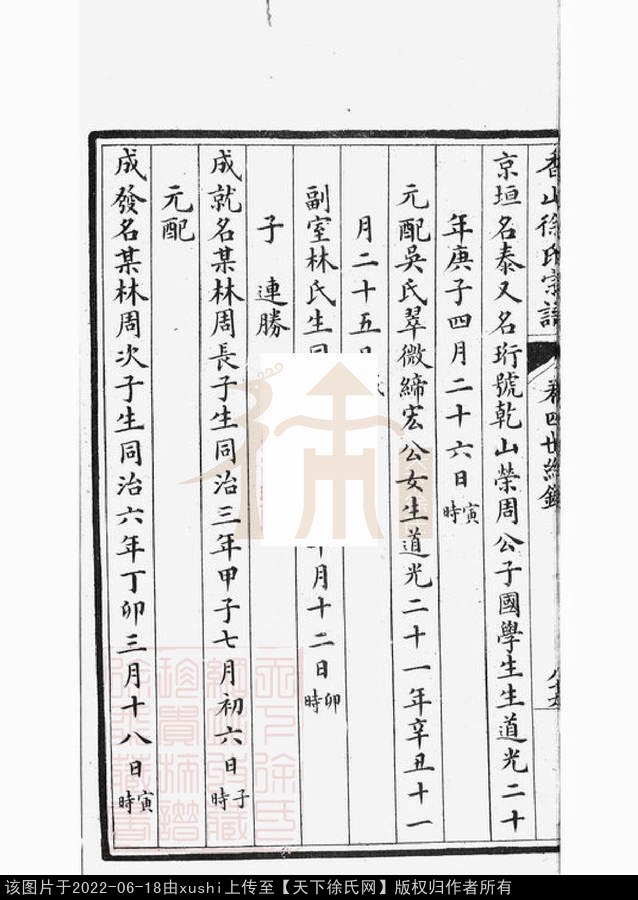 香山徐氏宗譜 卷四世紀錄
京垣名泰又名珩號乾山榮周公子國學生生道光二十
年庚子四月二十六日寅時
元配吳氏翠微締宏公女生道光二十一年辛丑十一
月二十五日
副室林氏生同 年 月十二日卯時
子 連勝
成就名某林周長子生同治三年甲子七月初六日子時
元配
成發名某林周次子生同治六年丁卯三月十八日寅時
天下徐氏網
珍貴族譜
徐氏
该图片于2022-06-18由xushi上传至【天下徐氏网】版权归作者所有